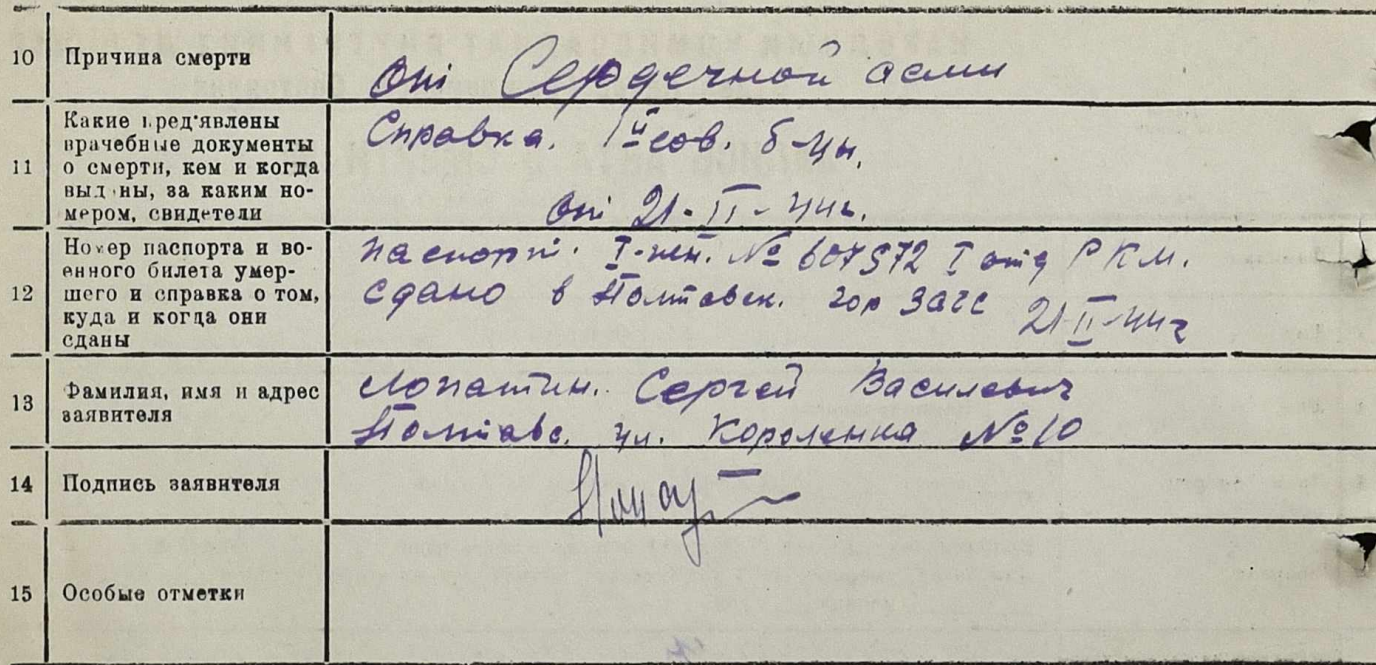 10 Причина смерти
от Сердечной асми
11 Какие пред'явлены
врачебные документы
о смерти, кем и когда
выданы, за каким но-
мером, свидетели
Справка. 1й сов. б-цы.
от 21-II-44г.
12 Номер паспорта и во-
енного билета умер-
шего и справка о том,
куда и когда они
сданы
паспорт. I- № 607572 I отд РКМ.
сдано в Полтавск. гор Загс 21-II-44г
13 Фамилия, имя и адрес
заявителя
Лопатин. Сергей Василевич
Полтава. ул. Короленка №10
14 Подпись заявителя
15 Особые отметки